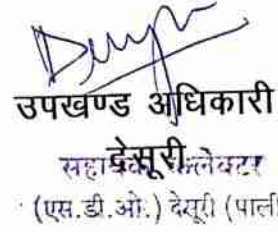 उपखण्ड अधिकारी
देसूरी
सहायक कलेक्टर
(एस.डी.ओ.) देसूरी (पाली